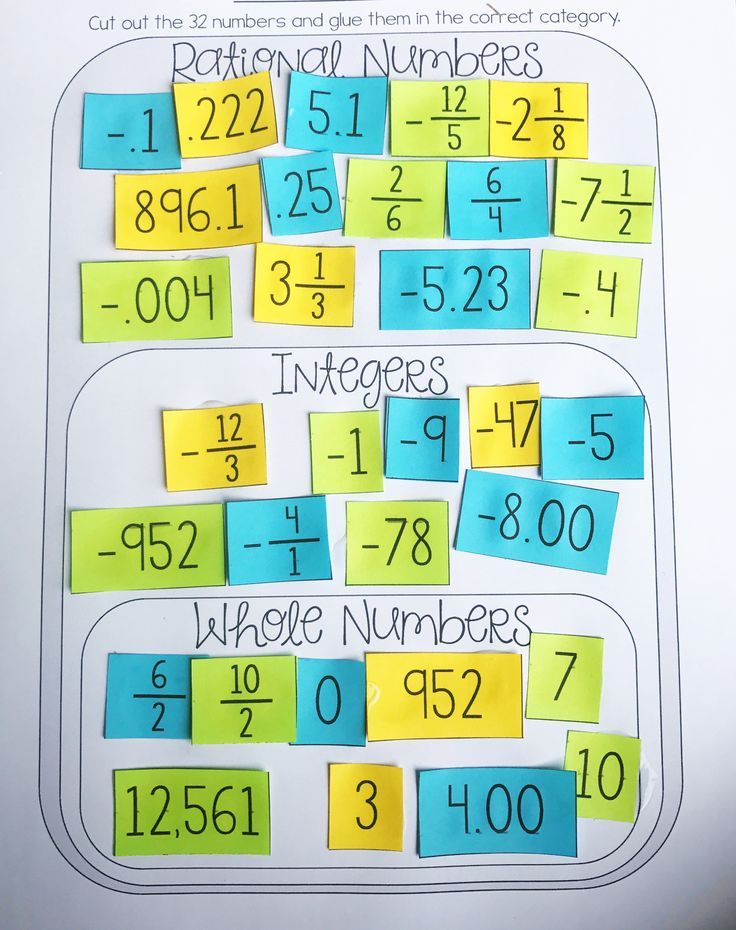 Cut out the 32 numbers and glue them in the correct category.
Rational Numbers
-.1 .222 5.1 -12/5 -2 1/8
896.1 .25 2/6 6/4 -7 1/2
-.004 3 1/3 -5.23 -.4
Integers
-12/3 -1 -9 -47 -5
-952 -4/1 -78 -8.00
Whole Numbers
6/2 10/2 0 952 7
12,561 3 4.00 10